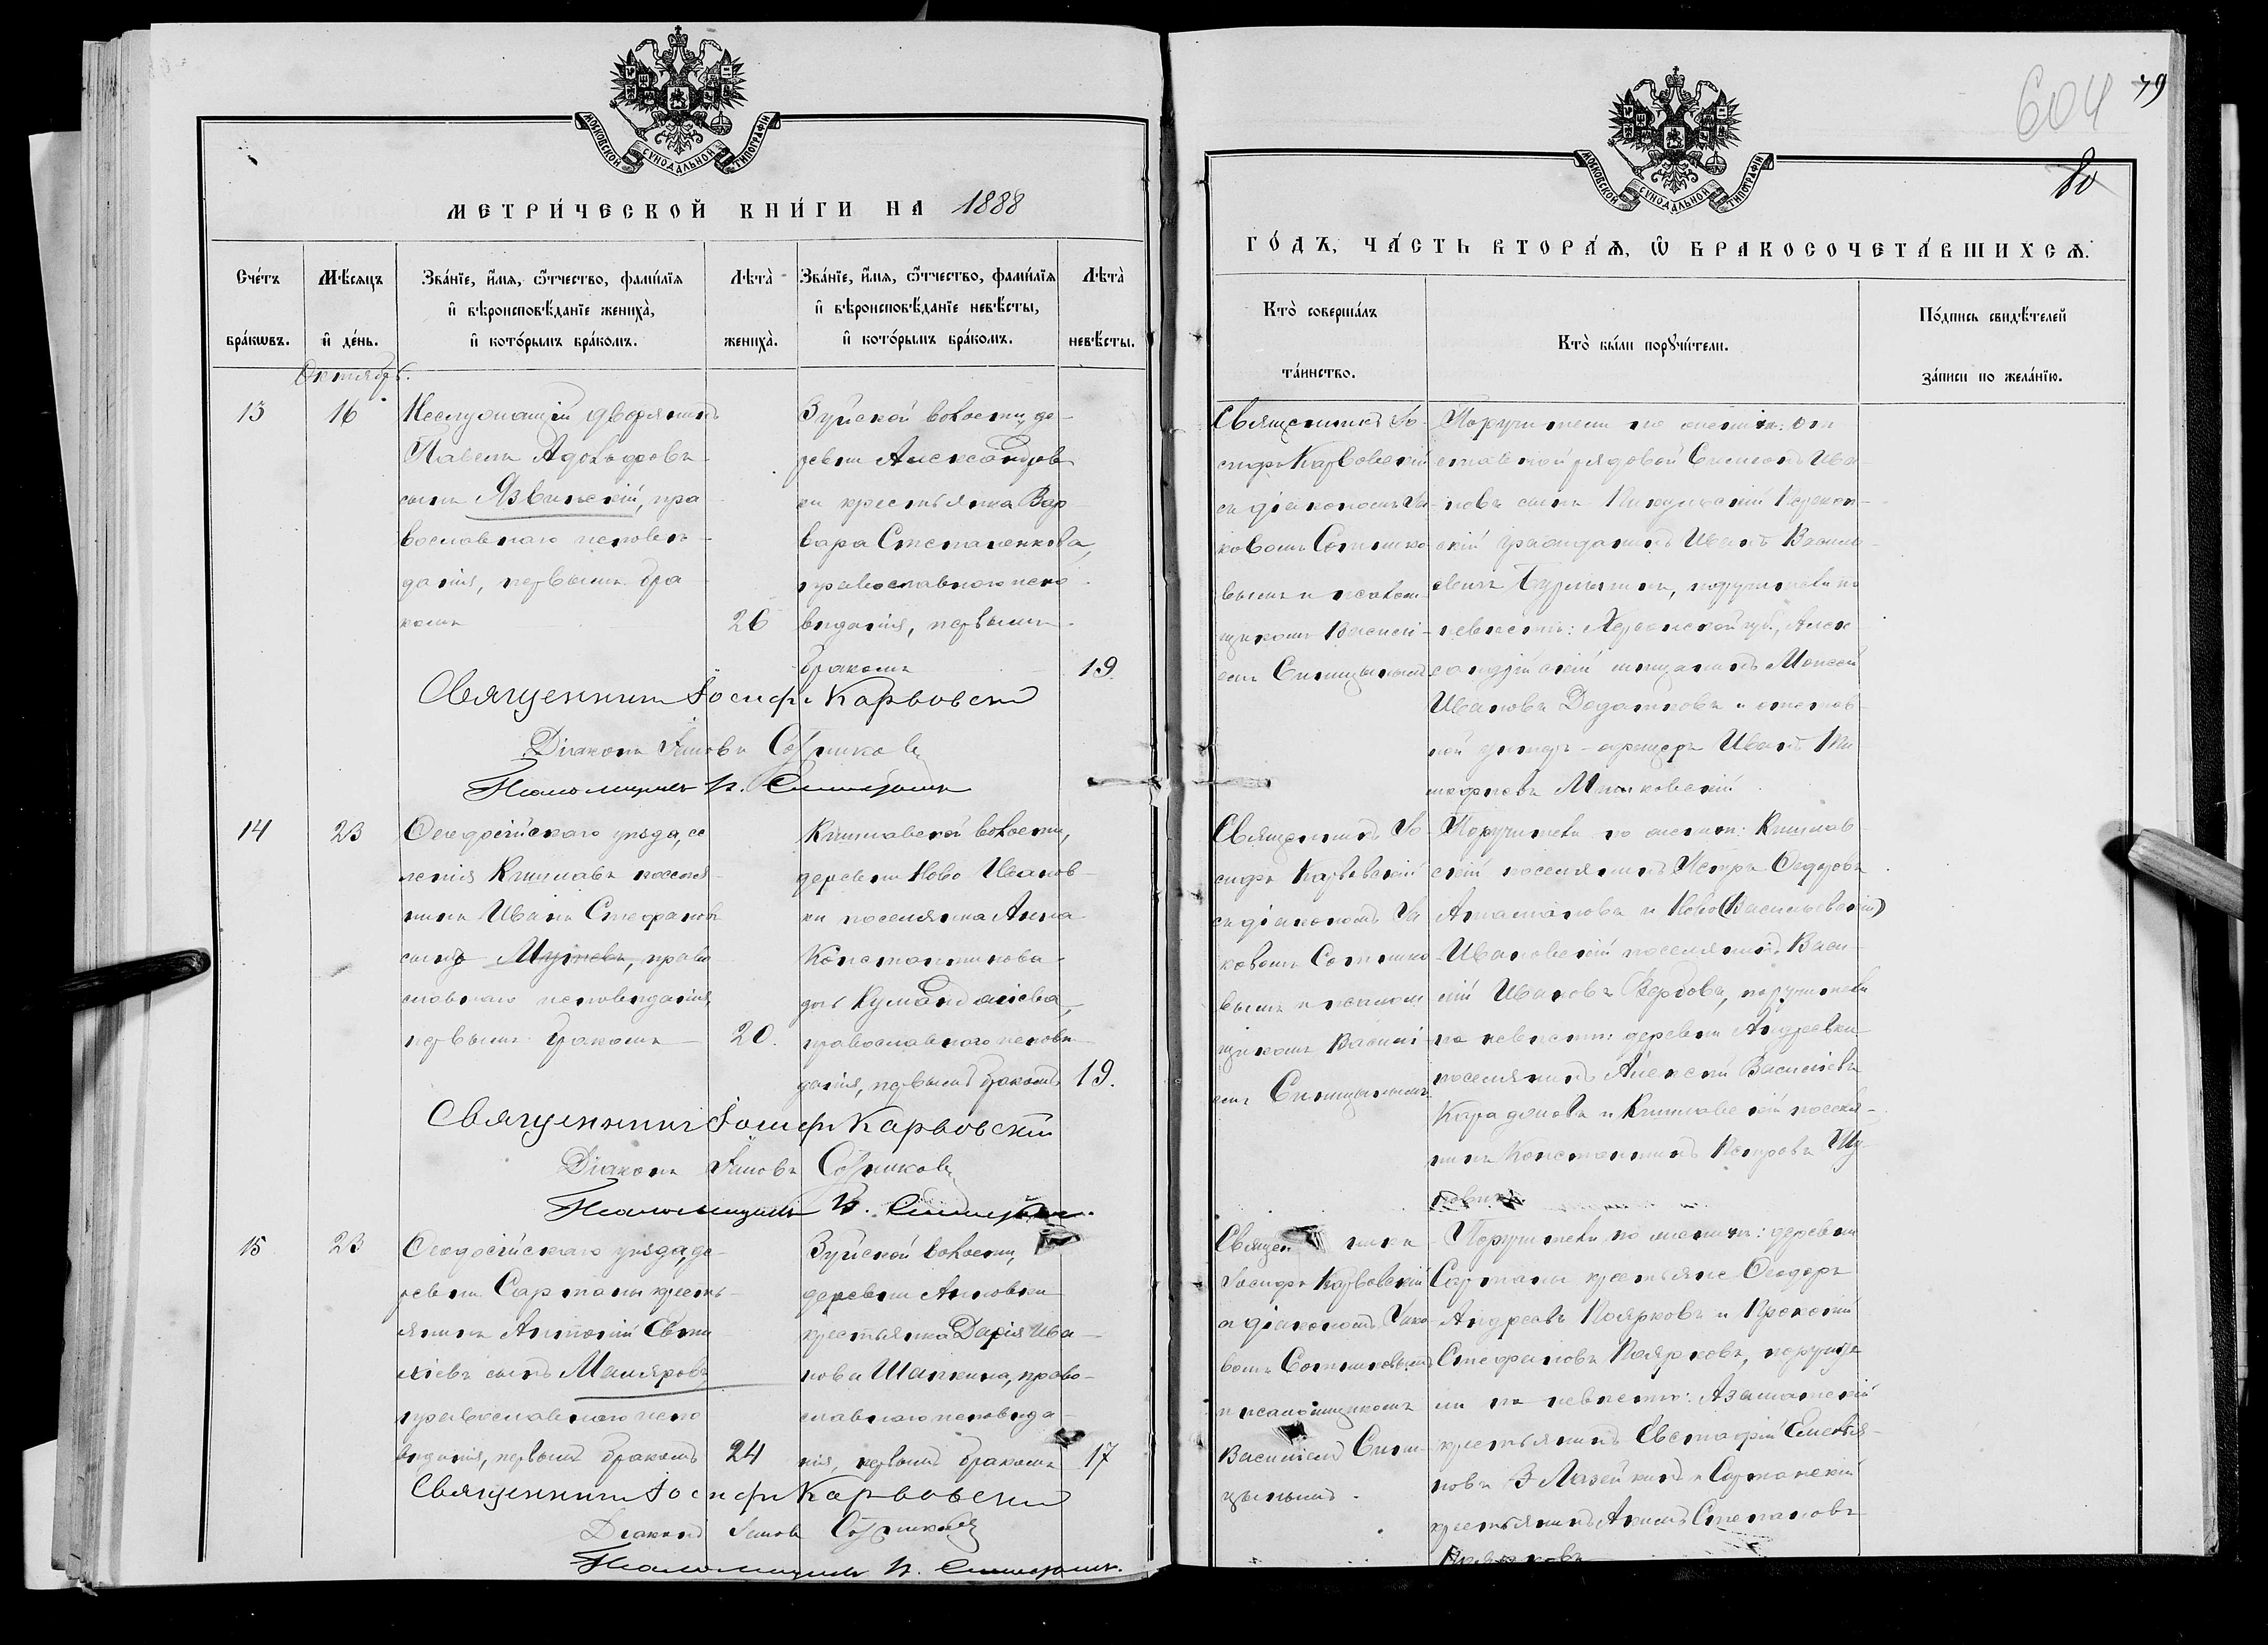 МОСКОВСКОЙ СѴНОДАЛЬНОЙ ТИПОГРАФІИ
МЕТРИ́ЧЕСКОЙ КНИ́ГИ НА 1888
Сче́тъ бра́кѡвъ.
Мѣ́сяцъ и҆ де́нь.
Зва́нїе, и҆́мѧ, ѻ҆́тчество, фами́лїѧ
и҆ вѣроисповѣ́данїе жениха̀,
и҆ кото́рымъ бра́комъ.
Лѣта̀ жениха̀.
Зва́нїе, и҆́мѧ, ѻ҆́тчество, фами́лїѧ
и҆ вѣроисповѣ́данїе невѣ́сты,
и҆ кото́рымъ бра́комъ.
Лѣта̀ невѣ́сты.
Октябрь.
13
16
Неслужащій дворянинъ
Павелъ Адольфовъ
сынъ Язвинскій, пра
вославнаго исповѣ
данія, первымъ бра
комъ
26
Зуйской волости, де-
ревни Александров
ки крестьянка Вар
вара Степаненкова,
православнаго испо
вѣданія, первымъ
бракомъ
19.
Священникъ Іосифъ Карвовскій
Діаконъ Іаковъ Сотниковъ
Псаломщикъ В. Синицынъ
14
23
Ѳеодосійскаго уѣзда, се
ленія Кишлавъ поселя-
нинъ Иванъ Стефановъ
сынъ
право
славнаго исповѣданія,
первымъ бракомъ
20.
Кишлавской волости,
деревни Ново Иванов-
ки поселянка Анна
Константинова
православнаго исповѣ
данія, первымъ бракомъ
19.
Священникъ Іосифъ Карвовскій
Діаконъ Іаковъ Сотниковъ
Псаломщикъ В. Синицынъ.
15
23
Ѳеодосійскаго уѣзда, де-
ревни Сартаны кресть-
янинъ Антоній
сынъ Маляровъ
православнаго испо
вѣданія, первымъ бракомъ
24
Зуйской волости,
деревни
крестьянка Дарія Ива-
нова Шапкина, право-
славнаго исповѣда-
нія, первымъ бракомъ
17
Священникъ Іосифъ Карвовскій
Діаконъ Іаковъ Сотниковъ
Псаломщикъ В. Синицынъ.
604
79
80
МОСКОВСКОЙ СѴНОДАЛЬНОЙ ТИПОГРАФІИ
ГО́ДЪ, ЧА́СТЬ ВТОРА́Ѧ, Ѡ҆ БРАКОСОЧЕТА́ВШИХСѦ.
Кто̀ соверша́лъ
та́инство.
Кто̀ бы́ли порꙋчи́тели.
По́дпись свидѣ́телей
за́писи по жела́нїю.
Священникъ Іо-
сифъ Карвовскій
съ діакономъ Іа-
ковомъ Сотнико
вымъ и псалом-
щикомъ Василі-
емъ Синицынымъ
Поручители по женихѣ: от
ставной рядовой Симеонъ Ива
новъ сынъ
гражданинъ Иванъ Василь
евичъ поручители по
невѣстѣ: Херсонской губ., Алек
сандрійскій мѣщанинъ Моисей
Ивановъ и отстав
ной унтеръ-офицеръ Иванъ Ни
кифоровъ
Священникъ Іо
сифъ Карвовскій
съ діакономъ Іа
ковомъ Сотнико
вымъ и псалом
щикомъ Василі
емъ Синицынымъ
Поручители по женихѣ: Кишлав
скій поселянинъ Петръ Ѳедоровъ
и Ново (Васильевскій)
Ивановскій поселянинъ Васи-
лій Ивановъ поручители
по невѣстѣ: деревни Андреевки
поселянинъ Алексей Василіевъ
и Кишлавскій поселя-
нинъ Константинъ Петровъ
Священ никъ
Іосифъ Карвовскій
съ діакономъ Іако
вомъ Сотниковымъ
и псаломщикомъ
Василіемъ Сини-
цынымъ.
Поручители по женихѣ: деревни
Сартаны крестьяне Ѳеодоръ
Андреевъ Поярковъ и Прокопій
Стефановъ Поярковъ, поручите
ли по невѣстѣ:
крестьянинъ Евстафій Емелья-
новъ и Сартанскій
крестьянинъ Акимъ Степановъ